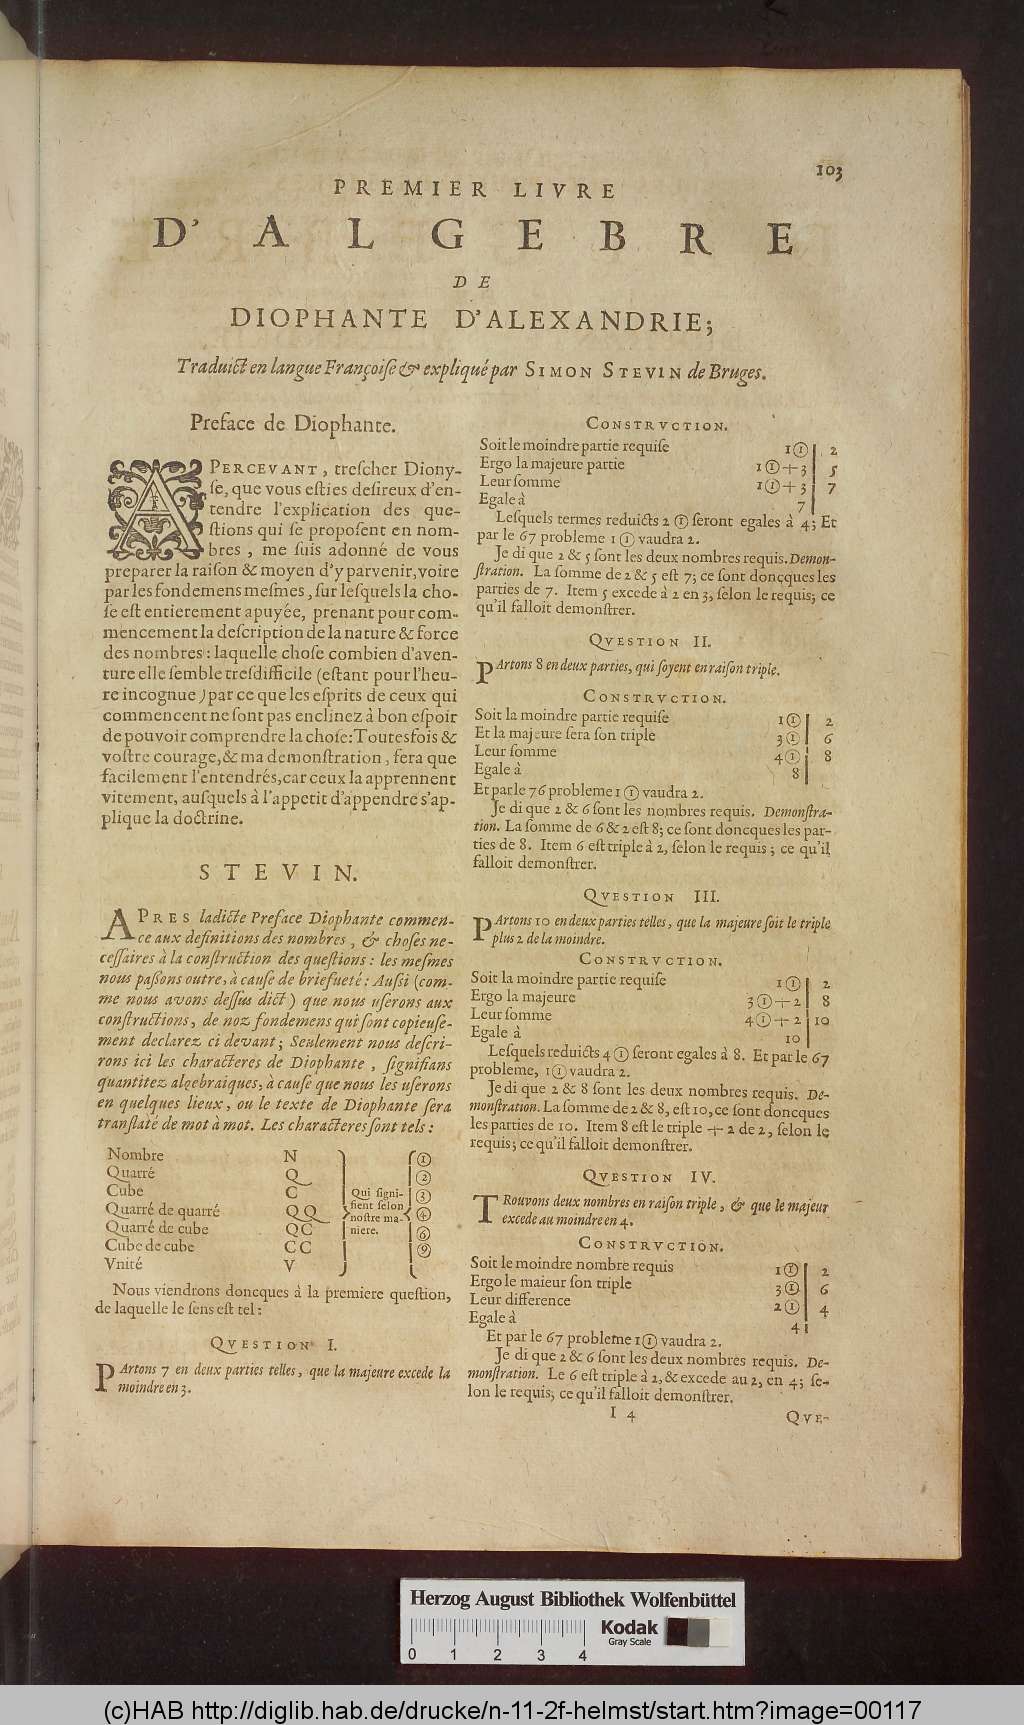 103
PREMIER LIVRE
D'ALGEBRE
DE
DIOPHANTE D'ALEXANDRIE;
Traduict en langue Françoiſe & expliqué par SIMON STEVIN de Bruges.
Preface de Diophante.
APERCEVANT, treſcher Diony-
ſe, que vous eſties deſireux d'en-
tendre l'explication des que-
ſtions qui ſe propoſent en nom-
bres, me ſuis adonné de vous
preparer la raiſon & moyen d'y parvenir, voire
par les fondemens meſmes, ſur leſquels la cho-
ſe eſt entierement apuyée, prenant pour com-
mencement la deſcription de la nature & force
des nombres: laquelle choſe combien d'aven-
ture elle ſemble treſdifficile (eſtant pour l'heu-
re incognue) par ce que les eſprits de ceux qui
commencent ne ſont pas enclinez à bon eſpoir
de pouvoir comprendre la choſe: Toutesfois &
voſtre courage, & ma demonſtration, fera que
facilement l'entendrés, car ceux la apprennent
vitement, auſquels à l'appetit d'appendre s'ap-
plique la doctrine.
STEVIN.
APRES ladicte Preface Diophante commen-
ce aux definitions des nombres, & choſes ne-
ceſſaires à la conſtruction des queſtions: les meſmes
nous paſſons outre, à cauſe de briefueté: Auſſi (com-
me nous avons deſſus dict) que nous uſerons aux
conſtructions, de noz fondemens qui ſont copieuſe-
ment declarez ci devant; Seulement nous deſcri-
rons ici les characteres de Diophante, ſignifians
quantitez algebraiques, à cauſe que nous les uſerons
en quelques lieux, ou le texte de Diophante ſera
tranſlaté de mot à mot. Les characteres ſont tels:
Nombre N ①
Quarré Q ②
Cube C Qui ſigni- ③
Quarré de quarré QQ fient ſelon noſtre ma- ④
Quarré de cube QC niere. ⑥
Cube de cube CC ⑨
Vnité V
Nous viendrons doncques à la premiere queſtion,
de laquelle le ſens eſt tel:
QVESTION I.
PArtons 7 en deux parties telles, que la majeure excede la
moindre en 3.
CONSTRVCTION.
Soit le moindre partie requiſe 1① | 2
Ergo la majeure partie 1①+3 | 5
Leur ſomme 1①+3 | 7
Egale à 7
Leſquels termes reduicts 2① ſeront egales à 4; Et
par le 67 probleme 1① vaudra 2.
Je di que 2 & 5 ſont les deux nombres requis. Demon-
ſtration. La ſomme de 2 & 5 eſt 7; ce ſont doncques les
parties de 7. Item 5 excede à 2 en 3, ſelon le requis; ce
qu'il falloit demonſtrer.
QVESTION II.
PArtons 8 en deux parties, qui ſoyent en raiſon triple.
CONSTRVCTION.
Soit la moindre partie requiſe 1① | 2
Et la majeure ſera ſon triple 3① | 6
Leur ſomme 4① | 8
Egale à 8
Et par le 76 probleme 1① vaudra 2.
Je di que 2 & 6 ſont les nombres requis. Demonſtra-
tion. La ſomme de 6 & 2 eſt 8; ce ſont doncques les par-
ties de 8. Item 6 eſt triple à 2, ſelon le requis; ce qu'il
falloit demonſtrer.
QVESTION III.
PArtons 10 en deux parties telles, que la majeure ſoit le triple
plus 2 de la moindre.
CONSTRVCTION.
Soit la moindre partie requiſe 1① | 2
Ergo la majeure 3①+2 | 8
Leur ſomme 4①+2 | 10
Egale à 10
Leſquels reduicts 4① ſeront egales à 8. Et par le 67
probleme, 1① vaudra 2.
Je di que 2 & 8 ſont les deux nombres requis. De-
monſtration. La ſomme de 2 & 8, eſt 10, ce ſont doncques
les parties de 10. Item 8 eſt le triple + 2 de 2, ſelon le
requis; ce qu'il falloit demonſtrer.
QVESTION IV.
TRouvons deux nombres en raiſon triple, & que le majeur
excede au moindre en 4.
CONSTRVCTION.
Soit le moindre nombre requis 1① | 2
Ergo le maieur ſon triple 3① | 6
Leur difference 2① | 4
Egale à 4
Et par le 67 probleme 1① vaudra 2.
Je di que 2 & 6 ſont les deux nombres requis. De-
monſtration. Le 6 eſt triple à 2, & excede au 2, en 4; ſe-
lon le requis; ce qu'il falloit demonſtrer.
I 4 QVE-
Herzog August Bibliothek Wolfenbüttel
Kodak
Gray Scale
0 1 2 3 4
(c)HAB http://diglib.hab.de/drucke/n-11-2f-helmst/start.htm?image=00117